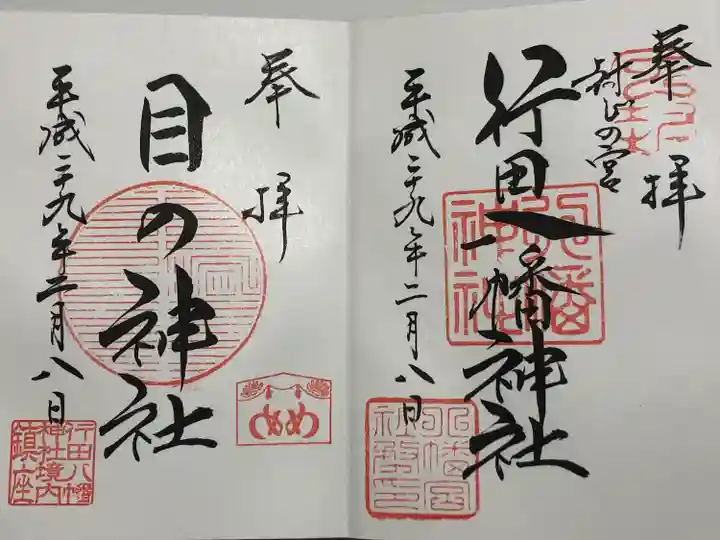 奉拝
封じの宮
行田八幡神社
八幡神社
平成二十九年二月八日
奉拝
目の神社
め め
平成二十九年二月八日
行田八幡
神社境内
鎮座